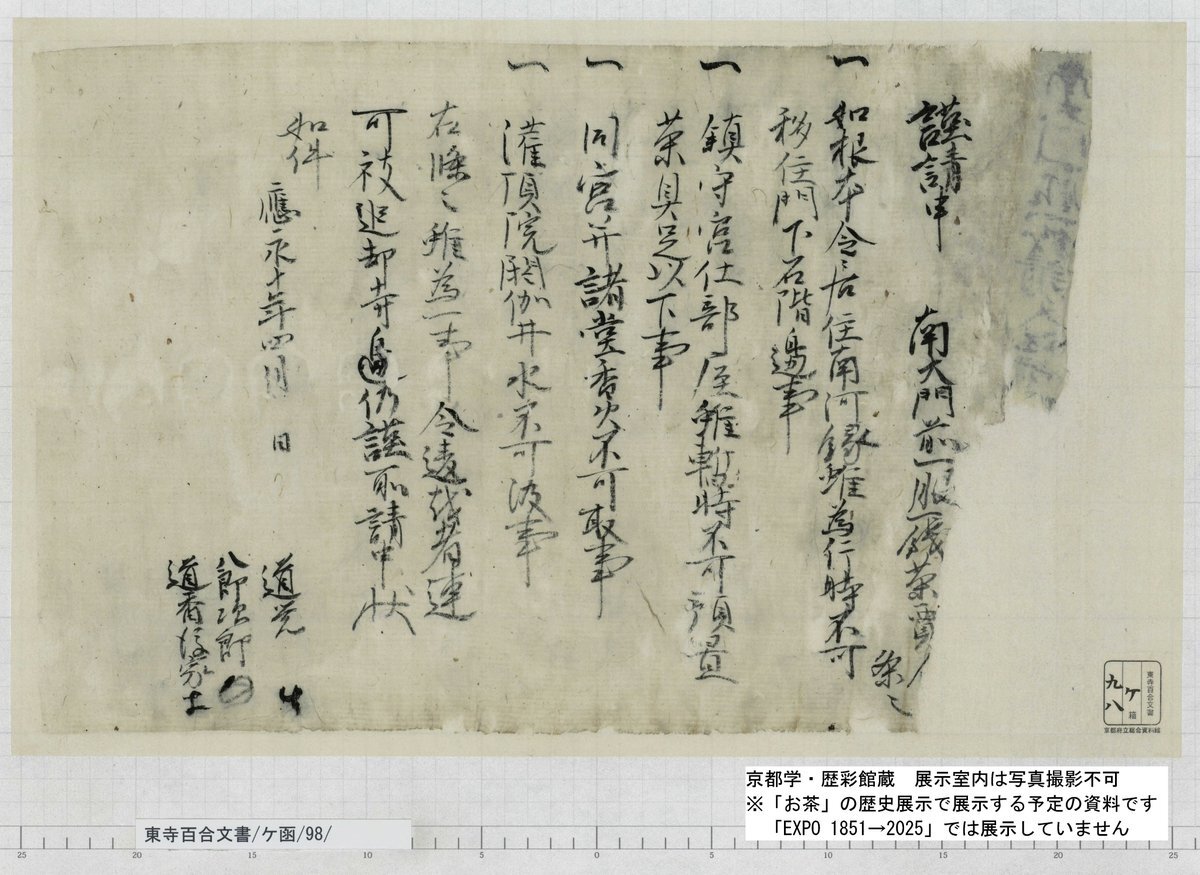 謹請申
南大門前一服一銭茶売人
条々
一 如根本令居住南河縁雖為片時不可
移住門下石階辺事
一 鎮守宮仕部屋雖暫時不可預置
茶具足以下事
一 同宮并諸堂香火不可取事
一 灌頂院閼伽井水不可汲事
右条々雖為一事令違越者速
可被追却寺辺仍謹所請申状
如件
應永十年四月 日
道覚
八郎次郎
道香後家
東寺百合文書
ケ 箱
九八
京都府立総合資料館
京都学・歴彩館蔵 展示室内は写真撮影不可
※「お茶」の歴史展示で展示する予定の資料です
「EXPO 1851→2025」では展示していません
東寺百合文書/ケ函/98/
25 20 15 10 5 0 5 10 15 20 25